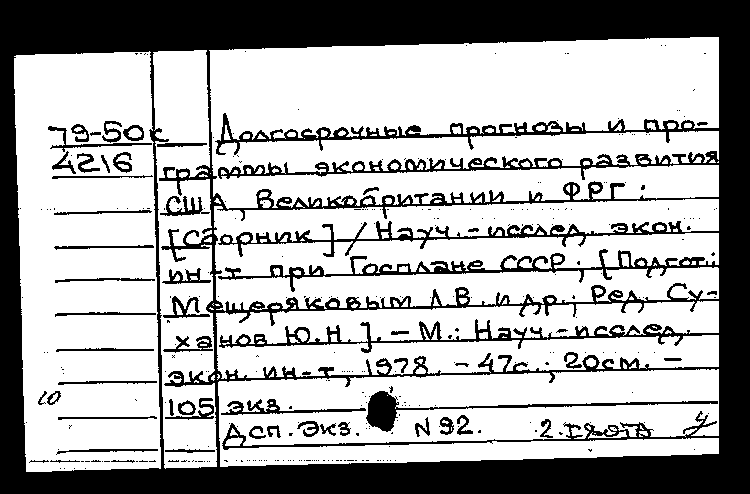 79-50к Долгосрочные прогнозы и про-
4216 граммы экономического развития
США, Великобритании и ФРГ:
[Сборник] / Науч.-исслед. экон.
ин-т при Госплане СССР; [Подгот.:
Мещеряковым Л.В. и др.; Ред. Су-
ханов Ю.Н.]. – М.: Науч.-исслед.
экон. ин-т, 1978. – 47с.; 20см. –
10 105 экз.
Дсп. Экз. N 92. 2.